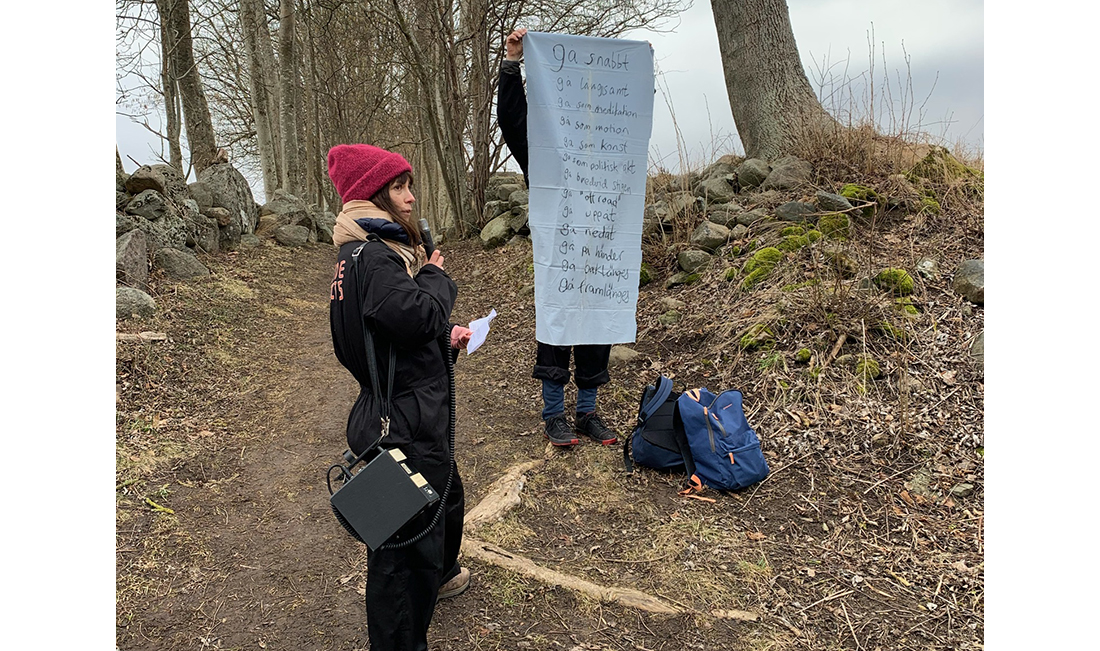 gå snabbt
gå långsamt
gå som meditation
gå som motion
gå som konst
gå som politisk akt
gå bredvid stigen
gå "off road"
gå uppåt
gå nedåt
gå på händer
gå baklänges
gå framlänges